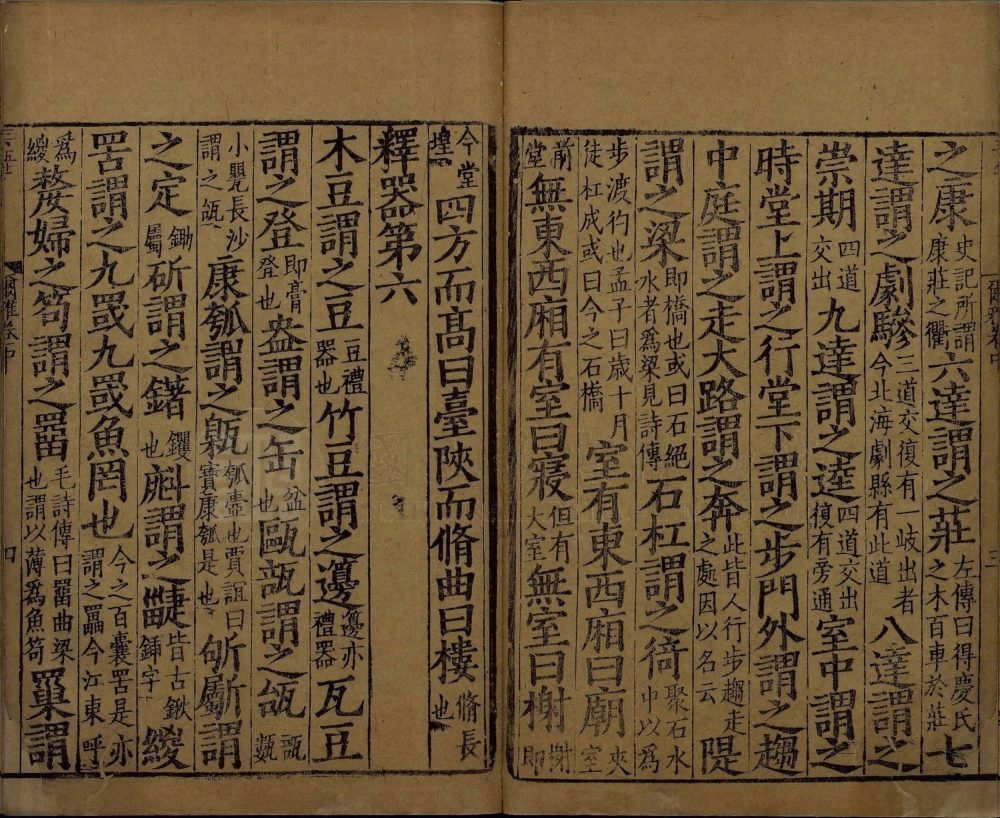 之康史記所謂康莊之衢六達謂之莊左傳曰得慶氏之木百車於莊七
達謂之劇驂三道交復有一岐出者今北海劇縣有此道八達謂之
崇期四道交出九達謂之逵四道交出復有旁通室中謂之
時堂上謂之行堂下謂之步門外謂之趨
中庭謂之走大路謂之奔此皆人行步趨走之處因以名云隄
謂之梁即橋也或曰石絕水者爲梁見詩傳石杠謂之徛聚石水中以爲
步渡彴也孟子曰歲十月徒杠成或曰今之石橋室有東西廂曰廟夾室
前堂無東西廂有室曰寢但有大室無室曰榭榭即
今堂堭四方而高曰臺陝而脩曲曰樓脩長也
釋器第六
木豆謂之豆豆禮器也竹豆謂之籩籩亦禮器瓦豆
謂之登即膏登也盎謂之缶盆也甌瓿謂之瓵瓿甊
小甖長沙謂之瓵康瓠謂之甈瓠壷也賈誼曰寶康瓠是也斪斸謂
之定鋤屬斫謂之鐯钁也㪺謂之疀皆古鍬鍤字緵
罟謂之九罭九罭魚罔也今之百囊罟是亦謂之䍡今江東呼
爲緵嫠婦之笱謂之罶毛詩傳曰罶曲梁也謂以薄爲魚笱罺謂
爾雅卷中
四